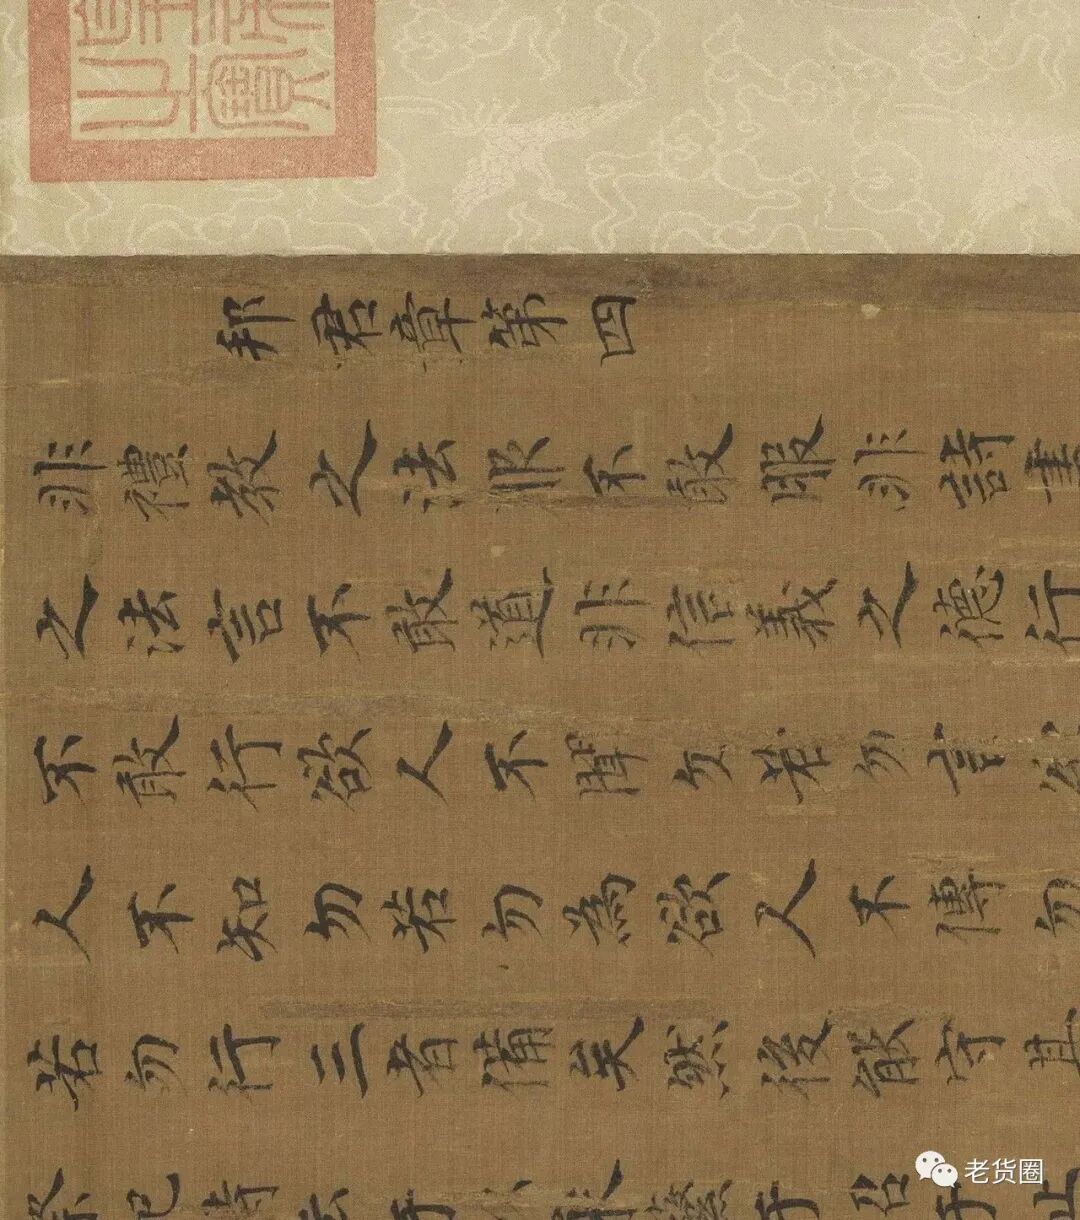 邦君章第四
非禮教之法服不敢服非詩書
之法言不敢道非信義之德行
不敢行欲人不聞勿若勿言欲
人不知勿若勿為欲人不傳勿
若勿行三者備矣然後能守其
老货圈